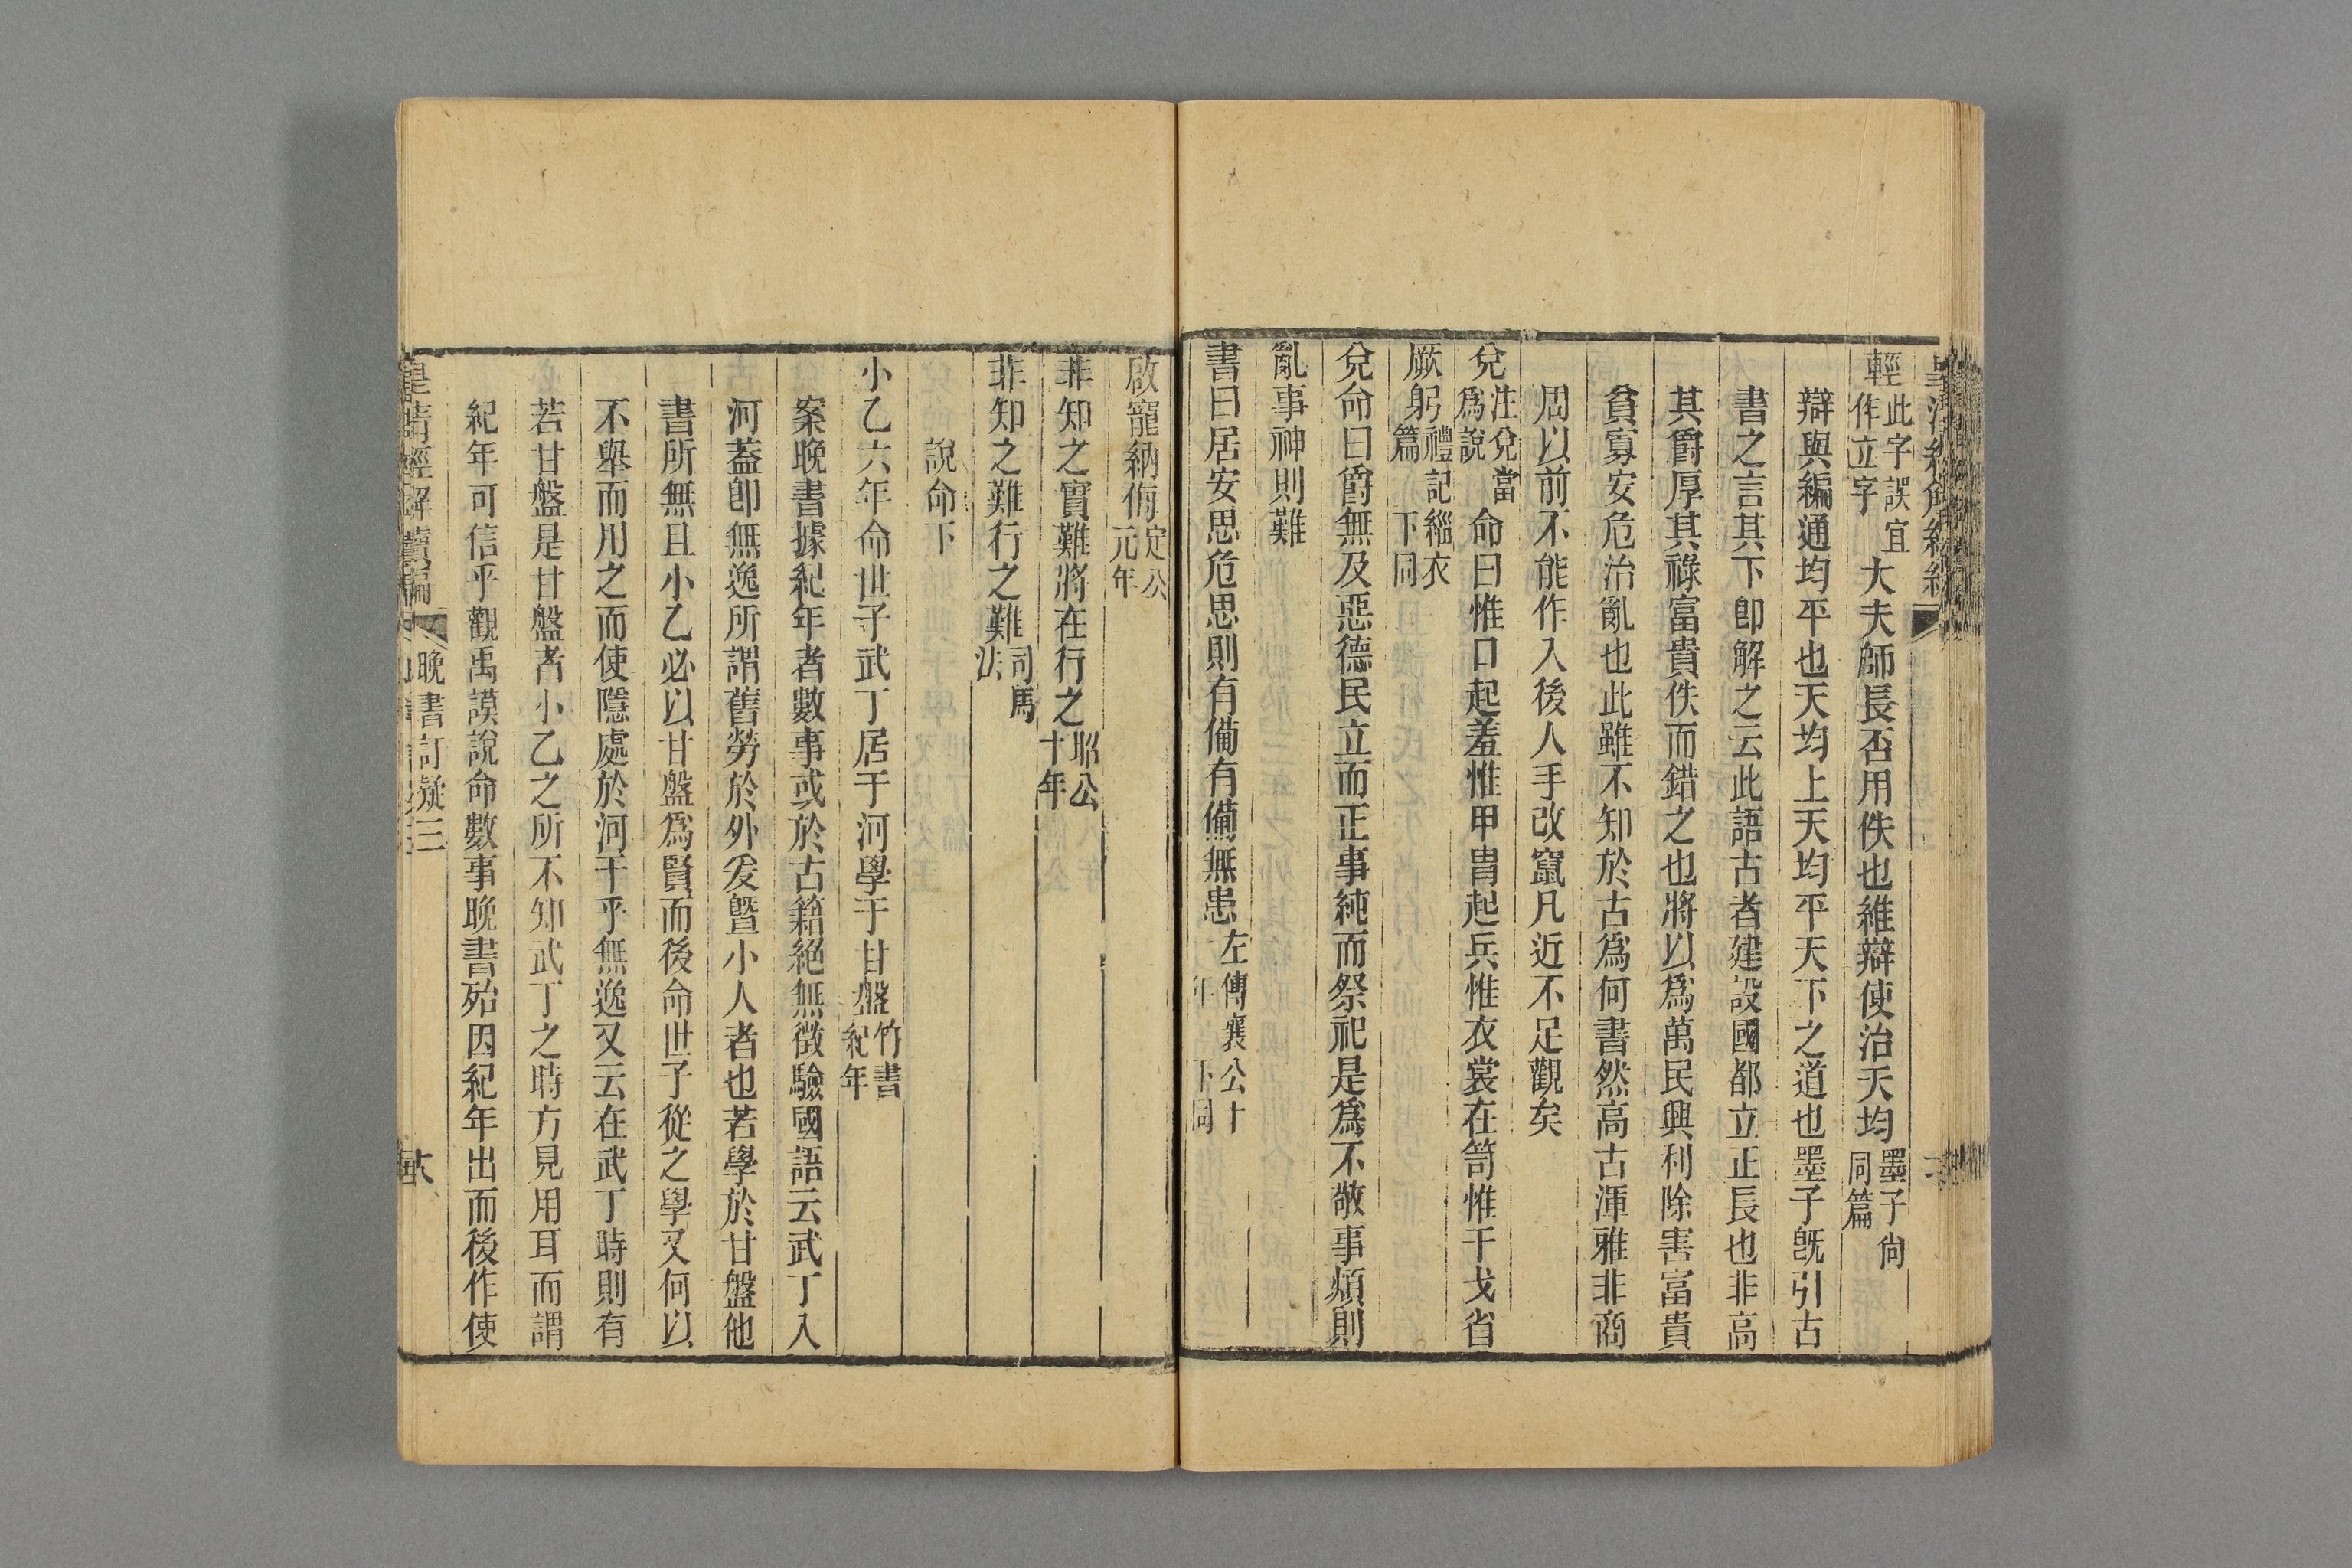 輕此字誤宜作立字大夫師長否用佚也維辯使治天均墨子尙同篇
辯與編通均平也天均上天均平天下之道也墨子旣引古
書之言其下卽解之云此語古者建設國都立正長也非高
其爵厚其祿富貴佚而錯之也將以爲萬民興利除害富貴
貧寡安危治亂也此雖不知於古爲何書然高古渾雅非商
周以前不能作入後人手改竄凡近不足觀矣
兌注兌當爲說命曰惟口起羞惟甲冑起兵惟衣裳在笥惟干戈省
厥躬禮記緇衣篇下同
兌命曰爵無及惡德民立而正事純而祭祀是爲不敬事煩則
亂事神則難
書曰居安思危思則有備有備無患左傳襄公十一年下同
啟寵納侮定公元年
非知之實難將在行之昭公十年
非知之難行之難司馬法
說命下
小乙六年命世子武丁居于河學于甘盤竹書紀年
案晚書據紀年者數事或於古籍絕無徵驗國語云武丁入
河蓋卽無逸所謂舊勞於外爰曁小人者也若學於甘盤他
書所無且小乙必以甘盤爲賢而後命世子從之學又何以
不舉而用之而使隱處於河干乎無逸又云在武丁時則有
若甘盤是甘盤者小乙之所不知武丁之時方見用耳而謂
紀年可信乎觀禹謨說命數事晚書殆因紀年出而後作使
皇清經解續編
晚書訂疑三